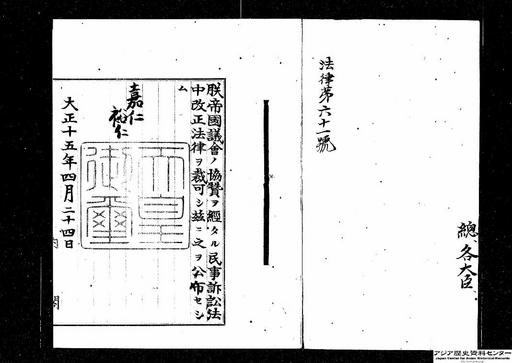 法律第六十一號
總、各大臣
朕帝國議會ノ協贊ヲ經タル民事訴訟法
中改正法律ヲ裁可シ茲ニ之ヲ公布セシ
ム
嘉仁
裕仁
天皇
御璽
大正十五年四月二十四日
内閣
アジア歴史資料センター
Japan Center for Asian Historical Records